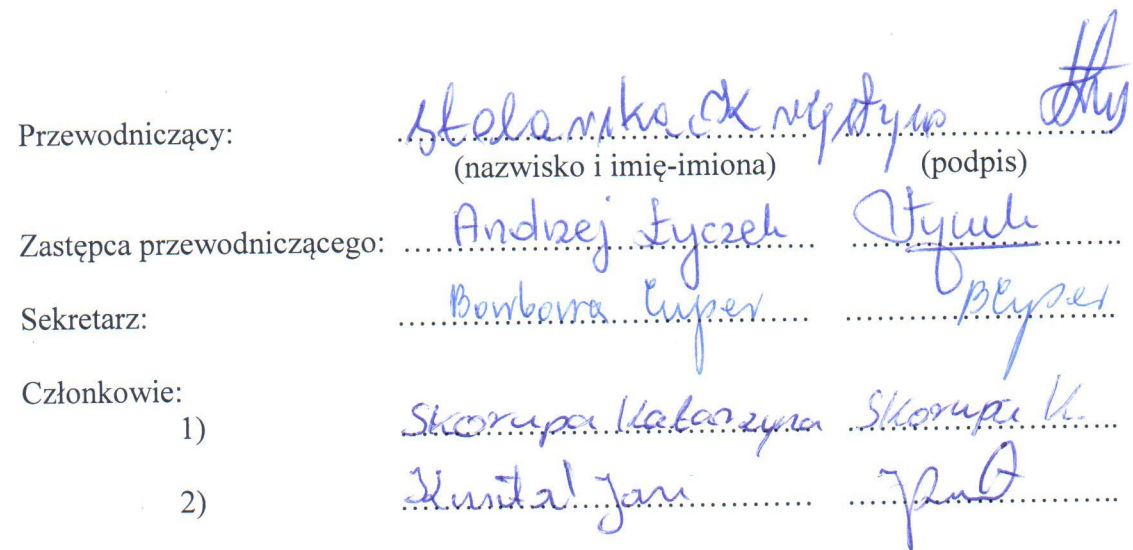 Przewodniczący: Stolarska Krystyna
(nazwisko i imię-imiona) (podpis)
Zastępca przewodniczącego: Andrzej Łyczek Łyczek
Sekretarz: Barbara
Członkowie:
1) Skorupa Katarzyna Skorupa K.
2) Jan